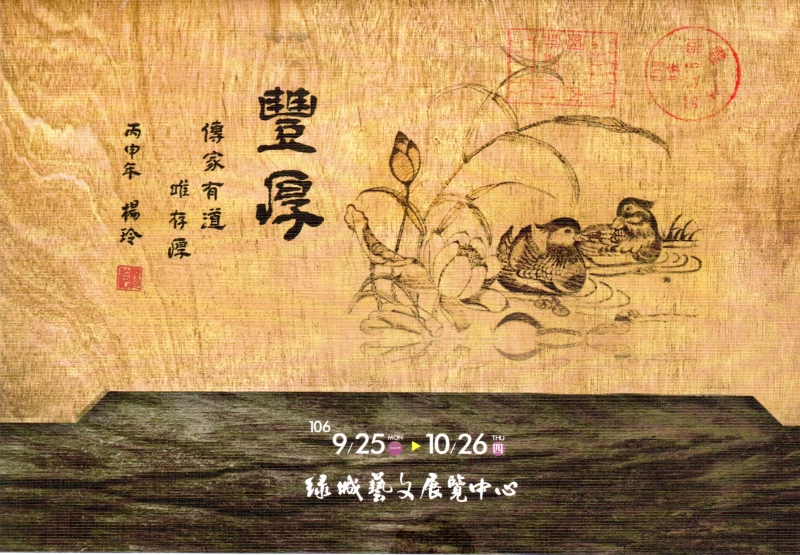 豐厚
傳家有道
唯存厚
丙申年 楊玲
106 9/25 MON 一 ▶ 10/26 THU 四
綠城藝文展覽中心